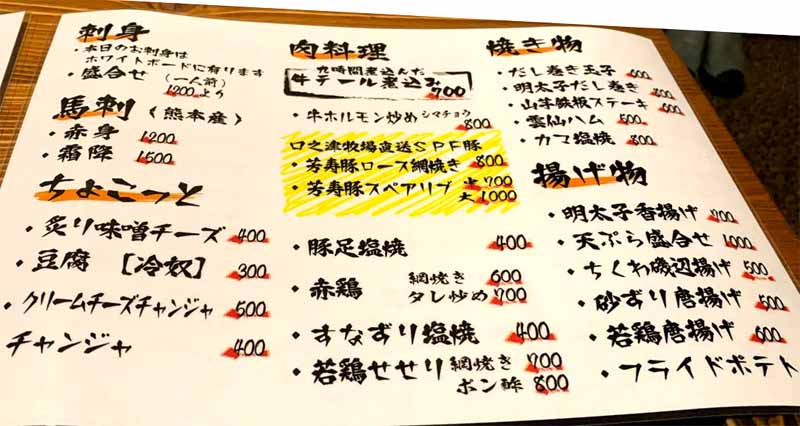 刺身
・本日のお刺身は
ホワイトボードに有ります
・盛合せ （一人前）
1200より
馬刺（熊本産）
・赤身 1200
・霜降 1500
ちょこっと
・炙り味噌チーズ 400
・豆腐［冷奴］ 300
・クリームチーズチャンジャ 500
チャンジャ 400
肉料理
九時間煮込んだ
牛テール煮込み 700
・牛ホルモン炒めシマチョウ 800
口之津牧場直送SPF豚
・芳寿豚ロース網焼き 800
・芳寿豚スペアリブ 小700
大1000
・豚足塩焼 400
・赤鶏 網焼き 600
タレ炒め 700
・すなずり塩焼 400
・若鶏せせり 網焼き 700
ポン酢 800
焼き物
・だし巻き玉子 600
・明太子だし巻き 800
・山芋鉄板ステーキ 600
・雲仙ハム 500
・カマ塩焼 800
揚げ物
・明太子香揚げ 700
・天ぷら盛合せ 1000
・ちくわ磯辺揚げ 500
・砂ずり唐揚げ 500
・若鶏唐揚げ 600
・フライドポテト